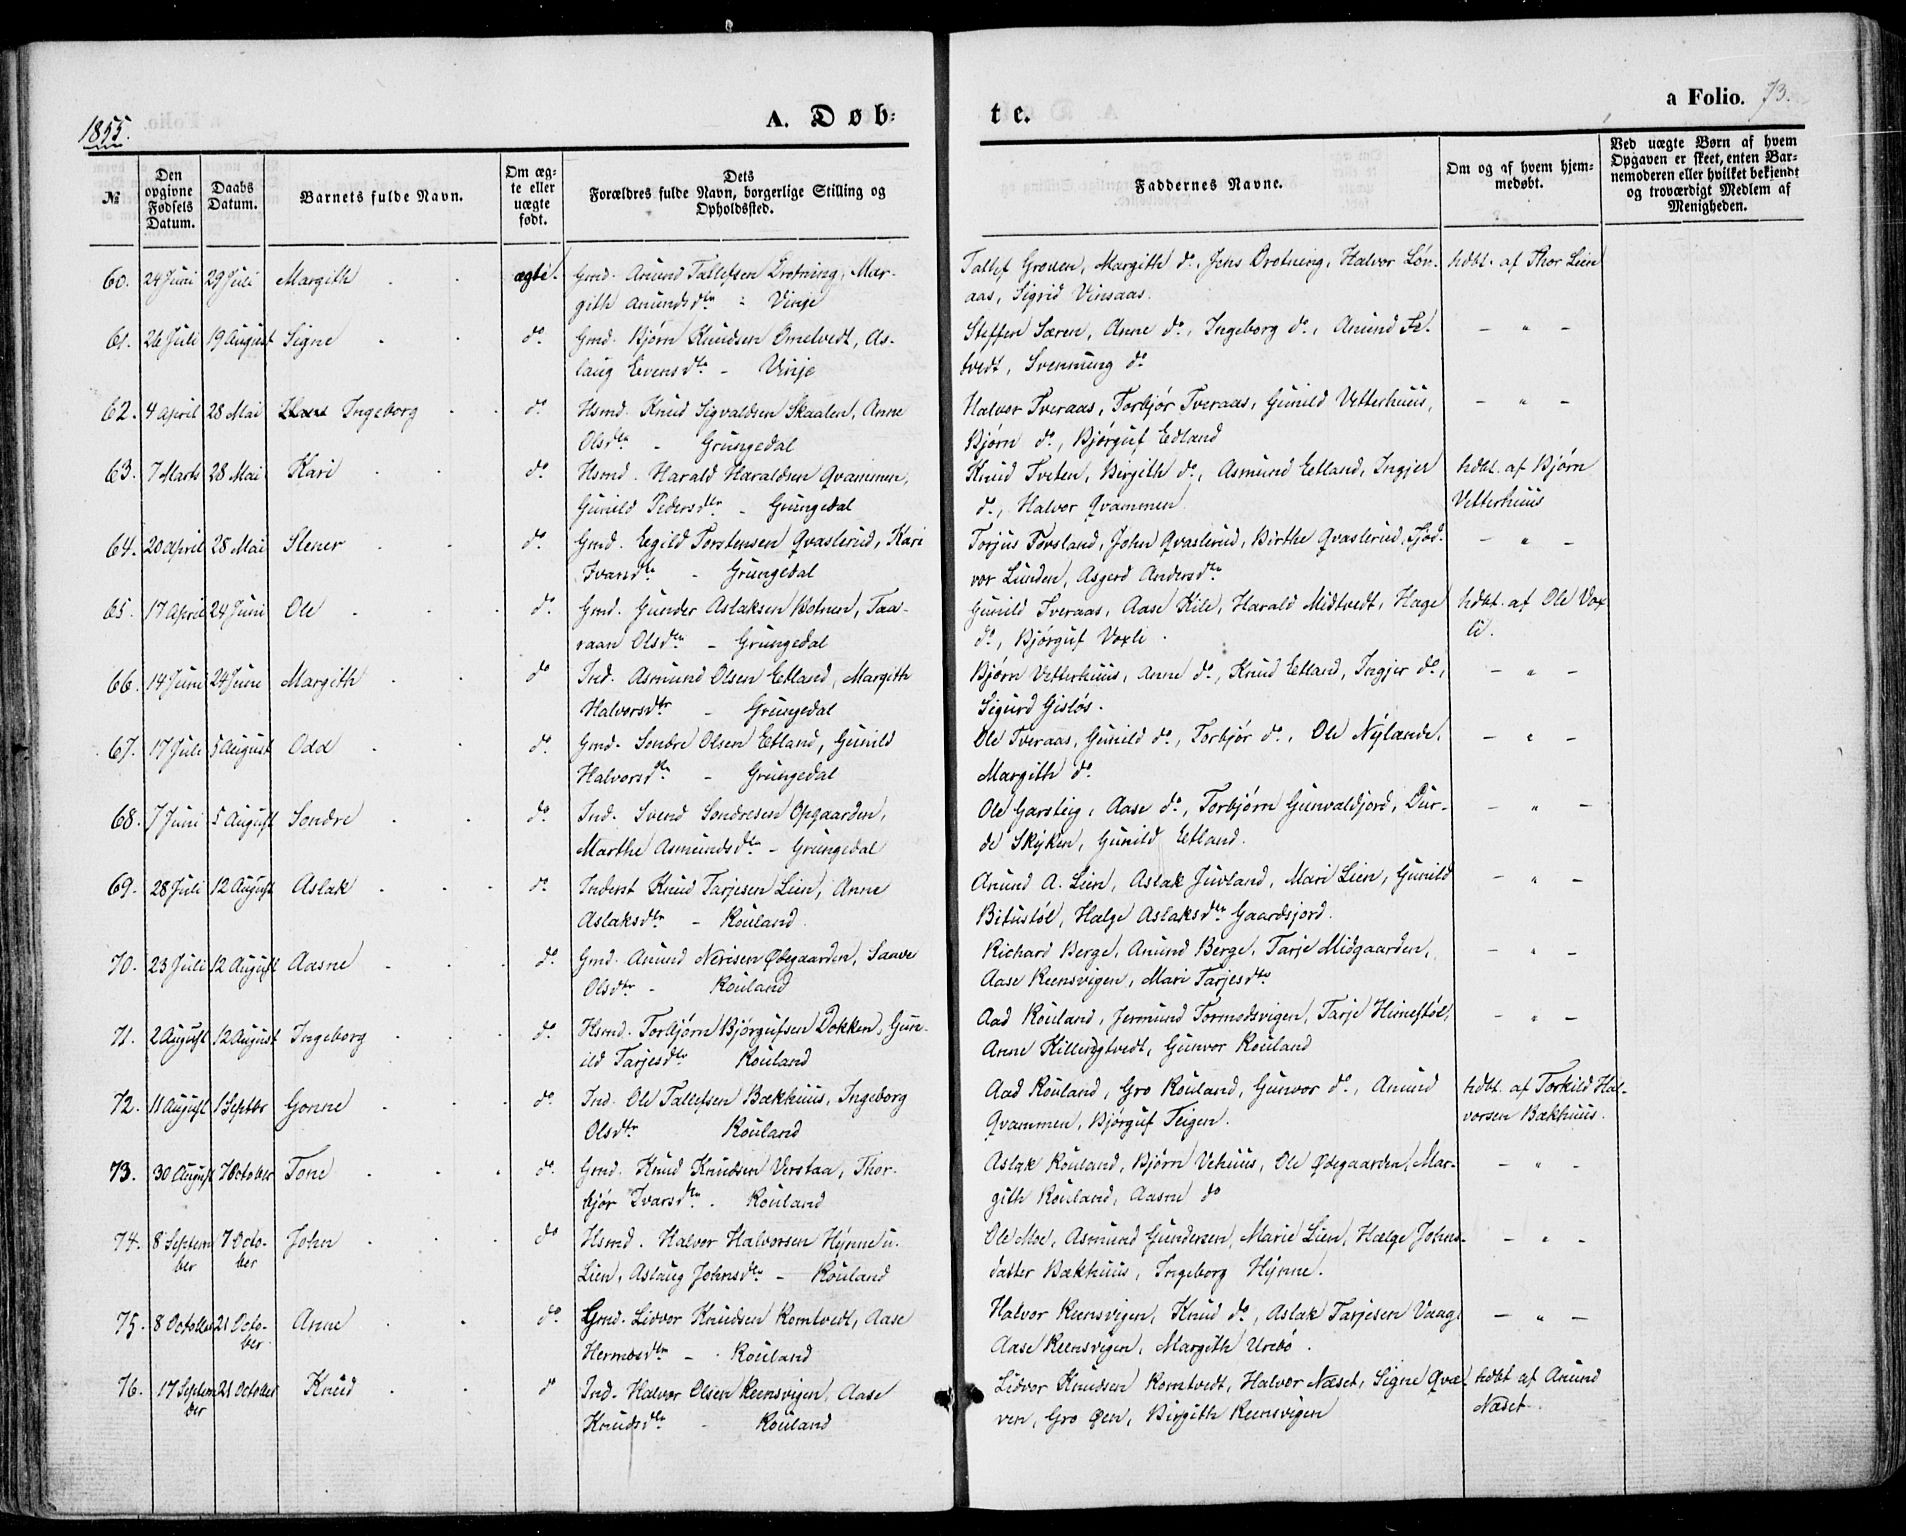 1855.
A. Døb-
te.
a Folio. 73.
№
Den opgivne Fødsels Datum.
Daabs Datum.
Barnets fulde Navn.
Om ægte eller uægte født.
Dets Forældres fulde Navn, borgerlige Stilling og Opholdssted.
Faddernes Navne.
Om og af hvem hjemmedøbt.
Ved uægte Børn af hvem Opgaven er skeet, enten Barnemoderen eller hvilket bekjendt og troværdigt Medlem af Menigheden.
60. 24 Juni 29 Juli Margith ægte. Gmd. Anund Tallefsen Drotning, Mar- Tallef Groven, Margith do, Jens Drotning, Halvor Løv- hdbt. af Thor Lien
gith Anundsdtr - Vinje aas, Sigrid Vinsaas.
61. 26 Juli 19 August Signe do. Gmd. Bjørn Knudsen Omelvedt, As- Steffen Særen, Anne do, Ingeborg do, Anund Se- - " -
laug Evensdtr - Vinje tvedt, Svennung do
62. 4 April 28 Mai Ingeborg do. Hsmd. Knud Sigvaldsen Skaalen, Anne Halvor Tveraas, Torbjør Tveraas, Gunild Vetterhuus, - " -
Olsdtr - Grungedal Bjørn do, Bjørguf Edland
63. 7 Marts 28 Mai Kari do. Hsmd. Harald Haraldsen Qvammen, Knud Tveten, Birgith do, Asmund Etland, Ingjer hdbt. af Bjørn
Gunild Pedersdtr - Grungedal do, Halvor Qvammen Vetterhuus
64. 20 April 28 Mai Stener do. Gmd. Egild Torstensen Qvaslerud, Kari Torjus Tovsland, John Qvaslerud, Birthe Qvaslerud, Tjod- - " -
Ivarsdtr - Grungedal vor Lunden, Asgerd Andersdtr
65. 17 April 24 Juni Ole do. Gmd. Gunder Aslaksen Botnen, Taa- Gunild Tveraas, Aase Kile, Harald Midtvedt, Hæge hdbt. af Ole Vox
raan Olsdtr - Grungedal do, Bjørguf Voxli. li.
66. 14 Juni 24 Juni Margith do Ind. Asmund Olsen Etland, Margith Bjørn Vetterhuus, Anne do, Knud Etland, Ingjer do, - " -
Halvorsdtr - Grungedal Sigurd Gisløs.
67. 17 Juli 5 August Odd do. Gmd. Sondre Olsen Etland, Gunild Ole Tveraas, Gunild do, Torbjør do, Ole Nylande, - " -
Halvorsdtr - Grungedal Margith do
68. 7 Juni 5 August Sondre do. Ind. Svend Sondresen Opgaarden, Ole Garsteig, Aase do, Torbjørn Gunvaldjord, Dur- - " -
Marthe Asmundsdtr - Grungedal de Skyken, Gunild Etland.
69. 28 Juli 12 August Aslak do. Inderst Knud Tarjesen Lien, Anne Anund A. Lien, Aslak Juvland, Mari Lien, Gunild - " -
Aslaksdtr - Rouland. Bitustøl, Hælge Aslaksdtr Gaardsjord.
70. 23 Juli 12 August Aasne do. Gmd. Anund Nerisen Ødegaarden, Saave Richard Berge, Anund Berge, Tarje Midgaarden, - " -
Olsdtr - Rouland Aase Reensvigen, Mari Tarjesdtr
71. 2 August 12 August Ingeborg do. Hsmd. Torbjørn Bjørgufsen Dokken, Gun- Aad Rouland, Jermund Tormodsvigen, Tarje Himestøl, - " -
ild Tarjesdtr Rouland Anne Killingtvedt, Gunvor Rouland
72. 11 August 1 Septbr Gonne do. Ind. Ole Tallefsen Bækhuus, Ingeborg Aad Rouland, Gro Rouland, Gunvor do, Anund hdbt. af Torkild Hal-
Olsdtr Rouland Qvammen, Bjørguf Teigen. vorsen Bækhuus.
73. 30 August 7 October Tone do. Gmd. Knud Knudsen Verstaa, Thor- Aslak Rouland, Bjørn Vehuus, Ole Ødegaarden, Mar- - " -
bjør Ivarsdtr. Rouland gith Rouland, Aasne do
74. 8 September 7 October John do Hsmd. Halvor Halvorsen Hynne u. Ole Moe, Asmund Gundersen, Marie Lien, Hælge Johns- - " -
Lien, Aslaug Johnsdtr - Rouland datter Bækhuus, Ingeborg Hynne.
75. 8 October 21 October Anne do. Gmd. Lidvor Knudsen Romtvedt, Aase Halvor Reensvigen, Knud do, Aslak Tarjesen Vaag, - " -
Hermosdtr - Rouland Aase Reensvigen, Margith Urebø.
76. 17 September 21 October Knud do Ind. Halvor Olsen Reensvigen, Aase Lidvor Knudsen Romtvedt, Halvor Næset, Signe Qvæ- hdbt af Anund
Knudsdtr - Rouland ven, Gro Øen, Birgith Reensvigen Nædet.